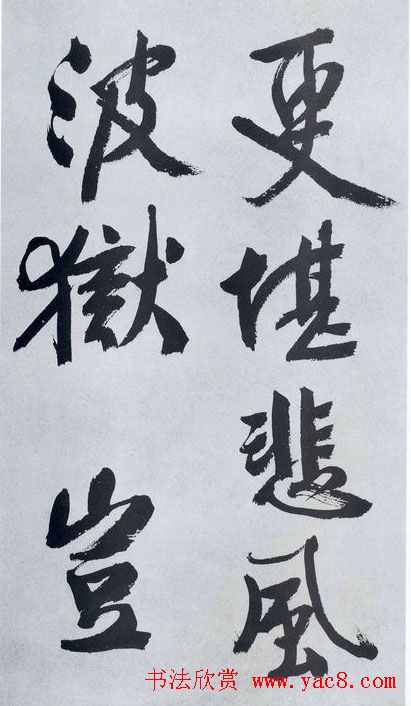 更堪悲風
波獄豈
书法欣赏 www.yac8.com